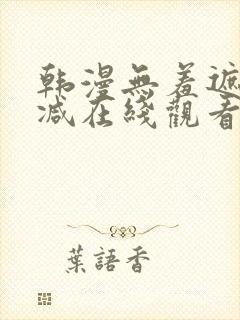 韩漫無羞遮
减在綫觀看
葉語香